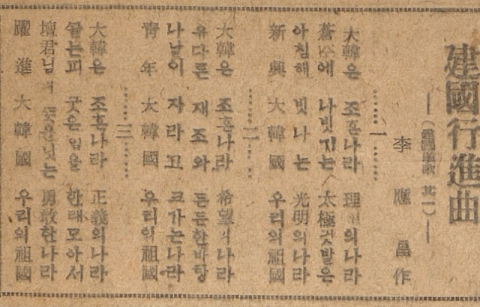 建國行進曲
其一
李應昌作
一
大韓은 조흔나라 理想의나라
蒼空에 나빗기는 太極깃발은
아침해 빗나는 光明의나라
新興大韓國 우리의祖國
二
大韓은 조흔나라 希望의나라
유다른 재조와 든든한바탕
나날이 자라고 크가는나라
靑年大韓國 우리의祖國
三
大韓은 조흔나라 正義의나라
끓는피 굿은힘을 한태모아서
壇君님의 勇敢한나라
躍進大韓國 우리의祖國